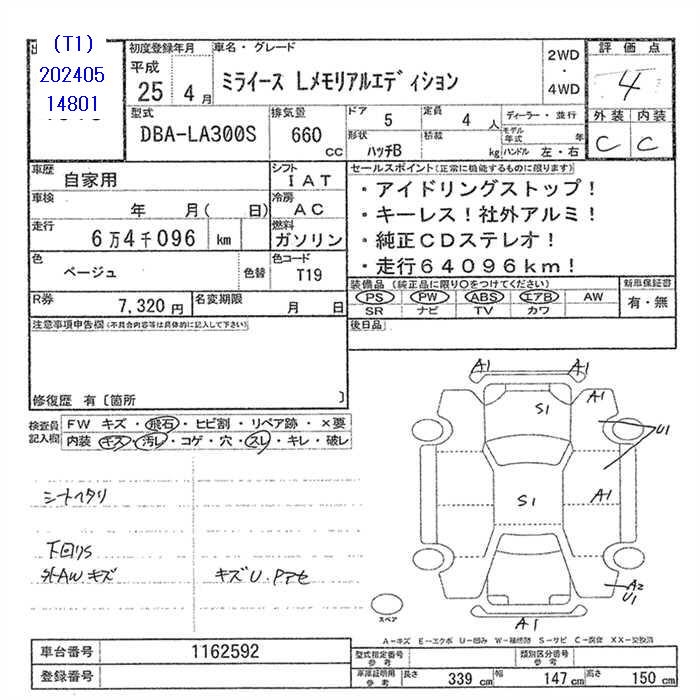 (T1)
202405
14801
初度登録年月
平成
25 4 月
車名・グレード
ミライース Lメモリアルエディション
2WD
・
4WD
評価点
4
外装 内装
C C
型式
DBA-LA300S
排気量
660 CC
ドア 5
定員 4 人
形状 ハッチB
積載 kg
ディーラー・並行
モデル年式 年
ハンドル 左・右
車歴
自家用
シフト
IAT
車検
年 月( 日)
冷房
AC
走行
6万4千096 km
燃料
ガソリン
色
ベージュ
色替
色コード
T19
セールスポイント(正常に機能するものに限ります)
・アイドリングストップ!
・キーレス!社外アルミ!
・純正CDステレオ!
・走行64096km!
R券
7,320 円
名変期限
月 日
装備品(純正品に限り○をつけてください)
PS PW ABS エアB AW
SR ナビ TV カワ
新車保証書
有・無
注意事項申告欄(不具合内容等は具体的に記入して下さい)
後日品
修復歴 有〔箇所 〕
検査員記入欄
FW キズ・飛石・ヒビ割・リペア跡・×要
内装 キズ・汚レ・コゲ・穴・スレ・キレ・破レ
シートヘタリ
下回りS
外AWキズ
キズU.Pアセ
A1
A1
A1
S1
U1
S1
A1
A2
U1
A1
スペア
A-キズ E-エクボ U-凹み W-補修跡 S-サビ C-腐食 XX-交換済
車台番号
1162592
登録番号
型式指定番号
参考
類別区分番号
参考
車庫証明用
参考
長さ 339 cm
幅 147 cm
高さ 150 cm